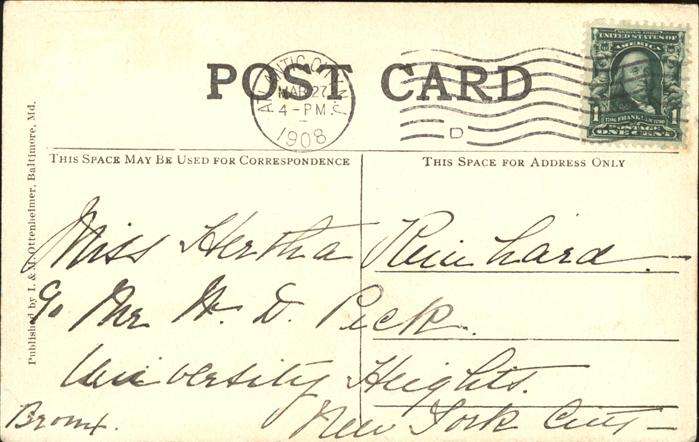 POST CARD
ATLANTIC CITY, N.J.
MAR 27
4-PM
1908
D
SERIES 1902
UNITED STATES OF
AMERICA
1 1
1706 FRANKLIN 1790
POSTAGE
ONE CENT
THIS SPACE MAY BE USED FOR CORRESPONDENCE
THIS SPACE FOR ADDRESS ONLY
Published by I. & M. Ottenheimer, Baltimore, Md.
Miss Hertha Reinhard.
c/o Mr H. D. Peck.
University Heights.
Bronx. New York City